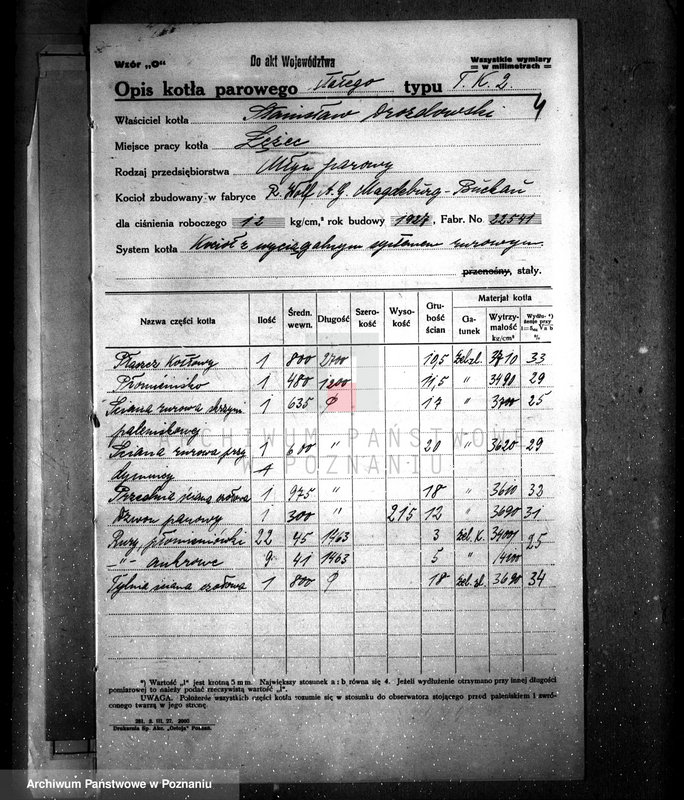 Wzór „O"
Do akt Województwa
Wszystkie wymiary
w milimetrach
Opis kotła parowego stałego typu T.K.2
4
Właściciel kotła Stanisław Drozdowski
Miejsce pracy kotła Lężec
Rodzaj przedsiębiorstwa Młyn parowy
Kocioł zbudowany w fabryce R. Wolf A.G. Magdeburg-Buckau
dla ciśnienia roboczego 12 kg/cm,² rok budowy 1927, Fabr. No 22541
System kotła Kocioł z wyciągalnym systemem rurowym
przenośny, stały.
Nazwa części kotła Ilość Średn. wewn. Długość Szerokość Wysokość Grubość ścian Materjał kotła
Gatunek Wytrzymałość kg/cm² Wydłu- *) żenie przy %
Płaszcz kotłowy 1 800 2700 10,5 żel.zl. 3710 33
Płomienisko 1 480 1200 11,5 " 3490 29
Ściana rurowa skrzyni 1 635 ϕ 17 " 3700 25
paleniskowej
Ściana rurowa przy 1 600 " 20 " 3620 29
dymnicy
Przednia ściana czołowa 1 975 " 18 " 3610 32
Dzwon parowy 1 300 " 215 12 " 3690 31
Rury płomieniówki 22 45 1463 3 żel. k. 25
-"- ankrowe 9 41 1463 5 "
Tylnia ściana czołowa 1 800 ϕ 18 żel. zl. 3690 34
*) Wartość „l" jest krotną 5 mm. Największy stosunek a : b równa się 4. Jeżeli wydłużenie otrzymano przy innej długości
pomiarowej to należy podać rzeczywistą wartość „l".
UWAGA. Położenie wszystkich części kotła rozumie się w stosunku do obserwatora stojącego przed paleniskiem i zwró-
conego twarzą w jego stronę.
Drukarnia Sp. Akc. „Ostoja" Poznań.
ARCHIWUM PAŃSTWOWE
W POZNANIU
Archiwum Państwowe w Poznaniu